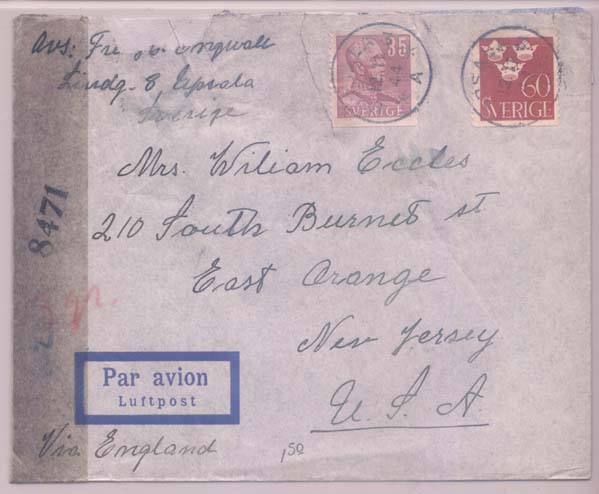 Avs: Fru
Lindg. 8, Upsala
Sverige
35
SVERIGE
60
SVERIGE
44
A
Mrs. Wiliam Eccles
210 South Burnet st
East Orange
New Jersey
U. S. A.
8471
Par avion
Luftpost
Via England
150